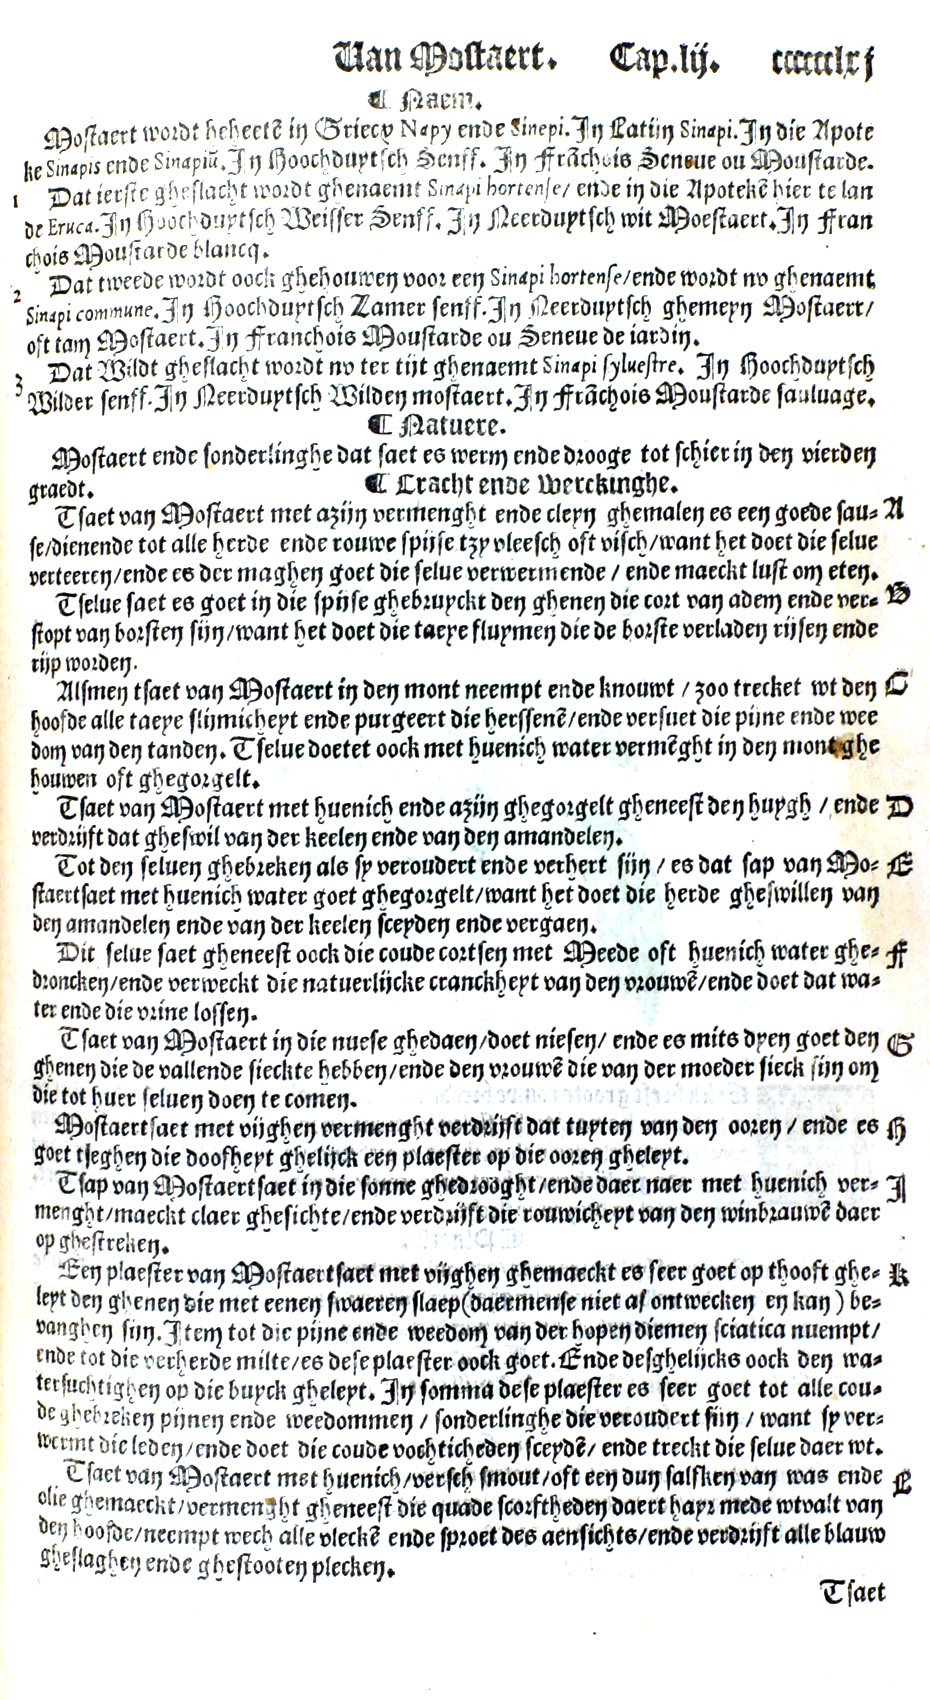 Van Mostaert. Cap.lij. cccccclxj
¶ Naem.
Mostaert wordt heheetē in Griecx Napy ende Sinepi. In Latijn Sinapi. In die Apote
ke Sinapis ende Sinapiū. In Hoochduytsch Senff. In Frāchois Seneue ou Moustarde.
1 Dat ierste gheslacht wordt ghenaemt Sinapi hortense/ ende in die Apotekē hier te lan
de Eruca. In Hoochduytsch Weisser Senff. In Neerduytsch wit Moestaert. In Fran
chois Moustarde blancq.
2 Dat tweede wordt oock ghehouwen voor een Sinapi hortense/ende wordt nv ghenaemt
Sinapi commune. In Hoochduytsch Zamer senff. In Neerduytsch ghemeyn Mostaert/
oft tam Mostaert. In Franchois Moustarde ou Seneue de iardin.
3 Dat Wildt gheslacht wordt nv ter tijt ghenaemt Sinapi syluestre. In Hoochduytsch
Wilder senff. In Neerduytsch Wilden mostaert. In Frāchois Moustarde sauluage.
¶ Natuere.
Mostaert ende sonderlinghe dat saet es werm ende drooge tot schier in den vierden
graedt. ¶ Cracht ende Werckinghe.
Tsaet van Mostaert met azijn vermenght ende cleyn ghemalen es een goede sau- A
se/dienende tot alle herde ende rouwe spijse tzy vleesch oft visch/want het doet die selue
verteeren/ende es der maghen goet die selue verwermende / ende maeckt lust om eten.
Tselue saet es goet in die spijse ghebruyckt den ghenen die cort van adem ende ver- B
stopt van borsten sijn/want het doet die taeye fluymen die de borste verladen rijsen ende
rijp worden.
Alsmen tsaet van Mostaert in den mont neempt ende knouwt / zoo trecket wt den C
hoofde alle taeye slijmicheyt ende purgeert die herssenē/ende versuet die pijne ende wee
dom van den tanden. Tselue doetet oock met huenich water vermēght in den mont ghe
houwen oft ghegorgelt.
Tsaet van Mostaert met huenich ende azijn ghegorgelt gheneest den huygh / ende D
verdrijft dat gheswil van der keelen ende van den amandelen.
Tot den seluen ghebreken als sy veroudert ende verhert sijn / es dat sap van Mo- E
staertsaet met huenich water goet ghegorgelt/want het doet die herde gheswillen van
den amandelen ende van der keelen sceyden ende vergaen.
Dit selue saet gheneest oock die coude cortsen met Meede oft huenich water ghe- F
droncken/ende verweckt die natuerlijcke cranckheyt van den vrouwē/ende doet dat wa-
ter ende die vrine lossen.
Tsaet van Mostaert in die nuese ghedaen/doet niesen/ ende es mits dyen goet den G
ghenen die de vallende sieckte hebben/ende den vrouwē die van der moeder sieck sijn om
die tot huer seluen doen te comen.
Mostaertsaet met vijghen vermenght verdrijft dat tuyten van den ooren / ende es H
goet tseghen die doofheyt ghelijck een plaester op die ooren gheleyt.
Tsap van Mostaertsaet in die sonne ghedrooght/ende daer naer met huenich ver- I
menght/maeckt claer ghesichte/ende verdrijft die rouwicheyt van den winbrauwē daer
op ghestreken.
Een plaester van Mostaertsaet met vijghen ghemaeckt es seer goet op thooft ghe- K
leyt den ghenen die met eenen swaeren slaep(daermense niet af ontwecken en kan) be-
vanghen sijn. Item tot die pijne ende weedom van der hopen diemen sciatica nuempt/
ende tot die verherde milte/es dese plaester oock goet. Ende desghelijcks oock den wa-
tersuchtighen op die buyck gheleyt. In somma dese plaester es seer goet tot alle cou-
de ghebreken pijnen ende weedommen / sonderlinghe die veroudert sijn / want sy ver-
wermt die leden/ende doet die coude vochticheden sceydē/ ende treckt die selue daer wt.
Tsaet van Mostaert met huenich/versch smout/oft een dun salfken van was ende L
olie ghemaeckt/vermenght gheneest die quade scorftheden daert hayr mede wtvalt van
den hoofde/neempt wech alle vleckē ende sproet des aensichts/ende verdrijft alle blauw
gheslaghen ende ghestooten plecken.
Tsaet